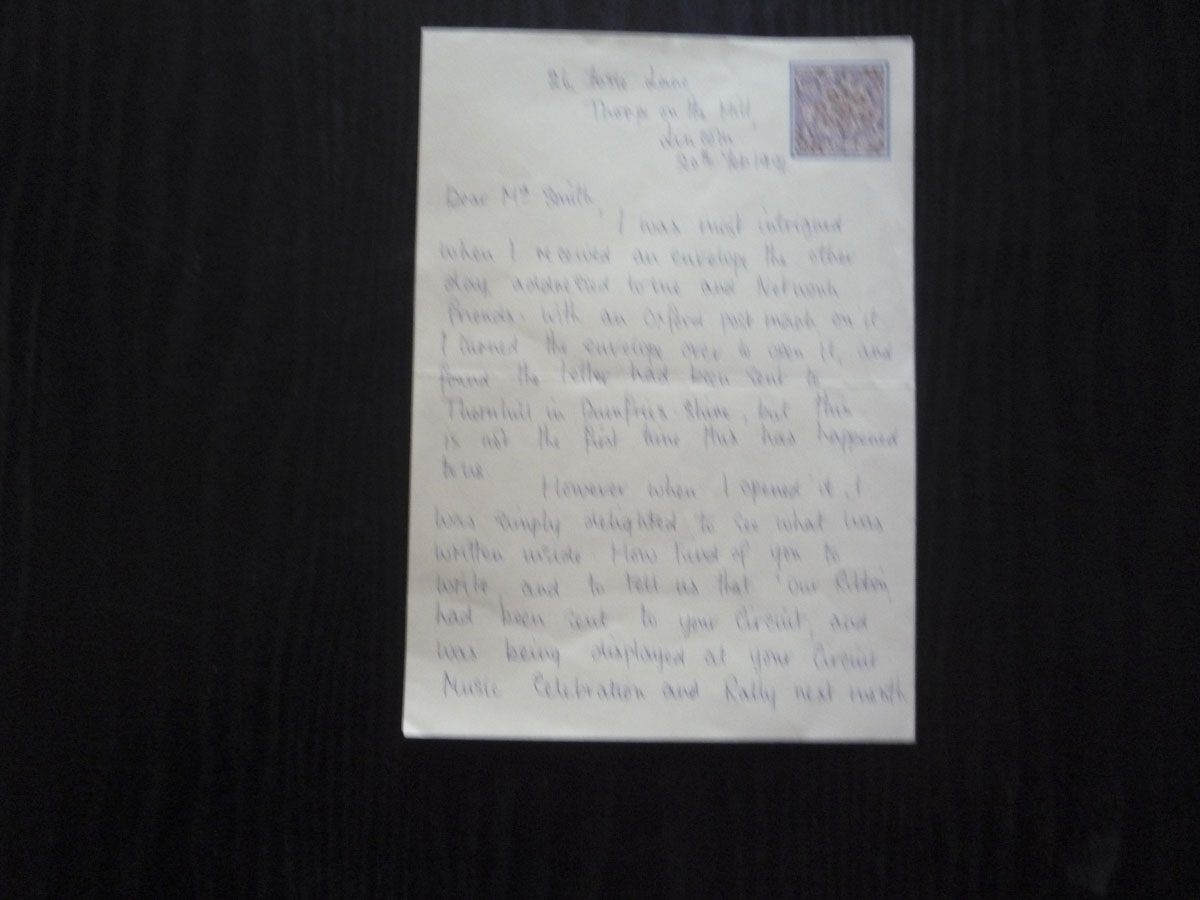 26, Lane
Thorpe on the Hill,
Lincoln
20th
Dear Mrs Smith,
I was most intrigued
when I received an envelope the other
day addressed to me and Network
Friends, with an Oxford post mark on it.
I turned the envelope over to open it, and
found the letter had been sent to
Thornhill in Dumfries Shire, but this
is not the first time this has happened
to us
However when I opened it, I
was simply delighted to see what was
written inside. How kind of you to
write and to tell us that 'Our Ribbon,
had been sent to your Circuit, and
was being displayed at your Circuit
Music Celebration and Rally next month